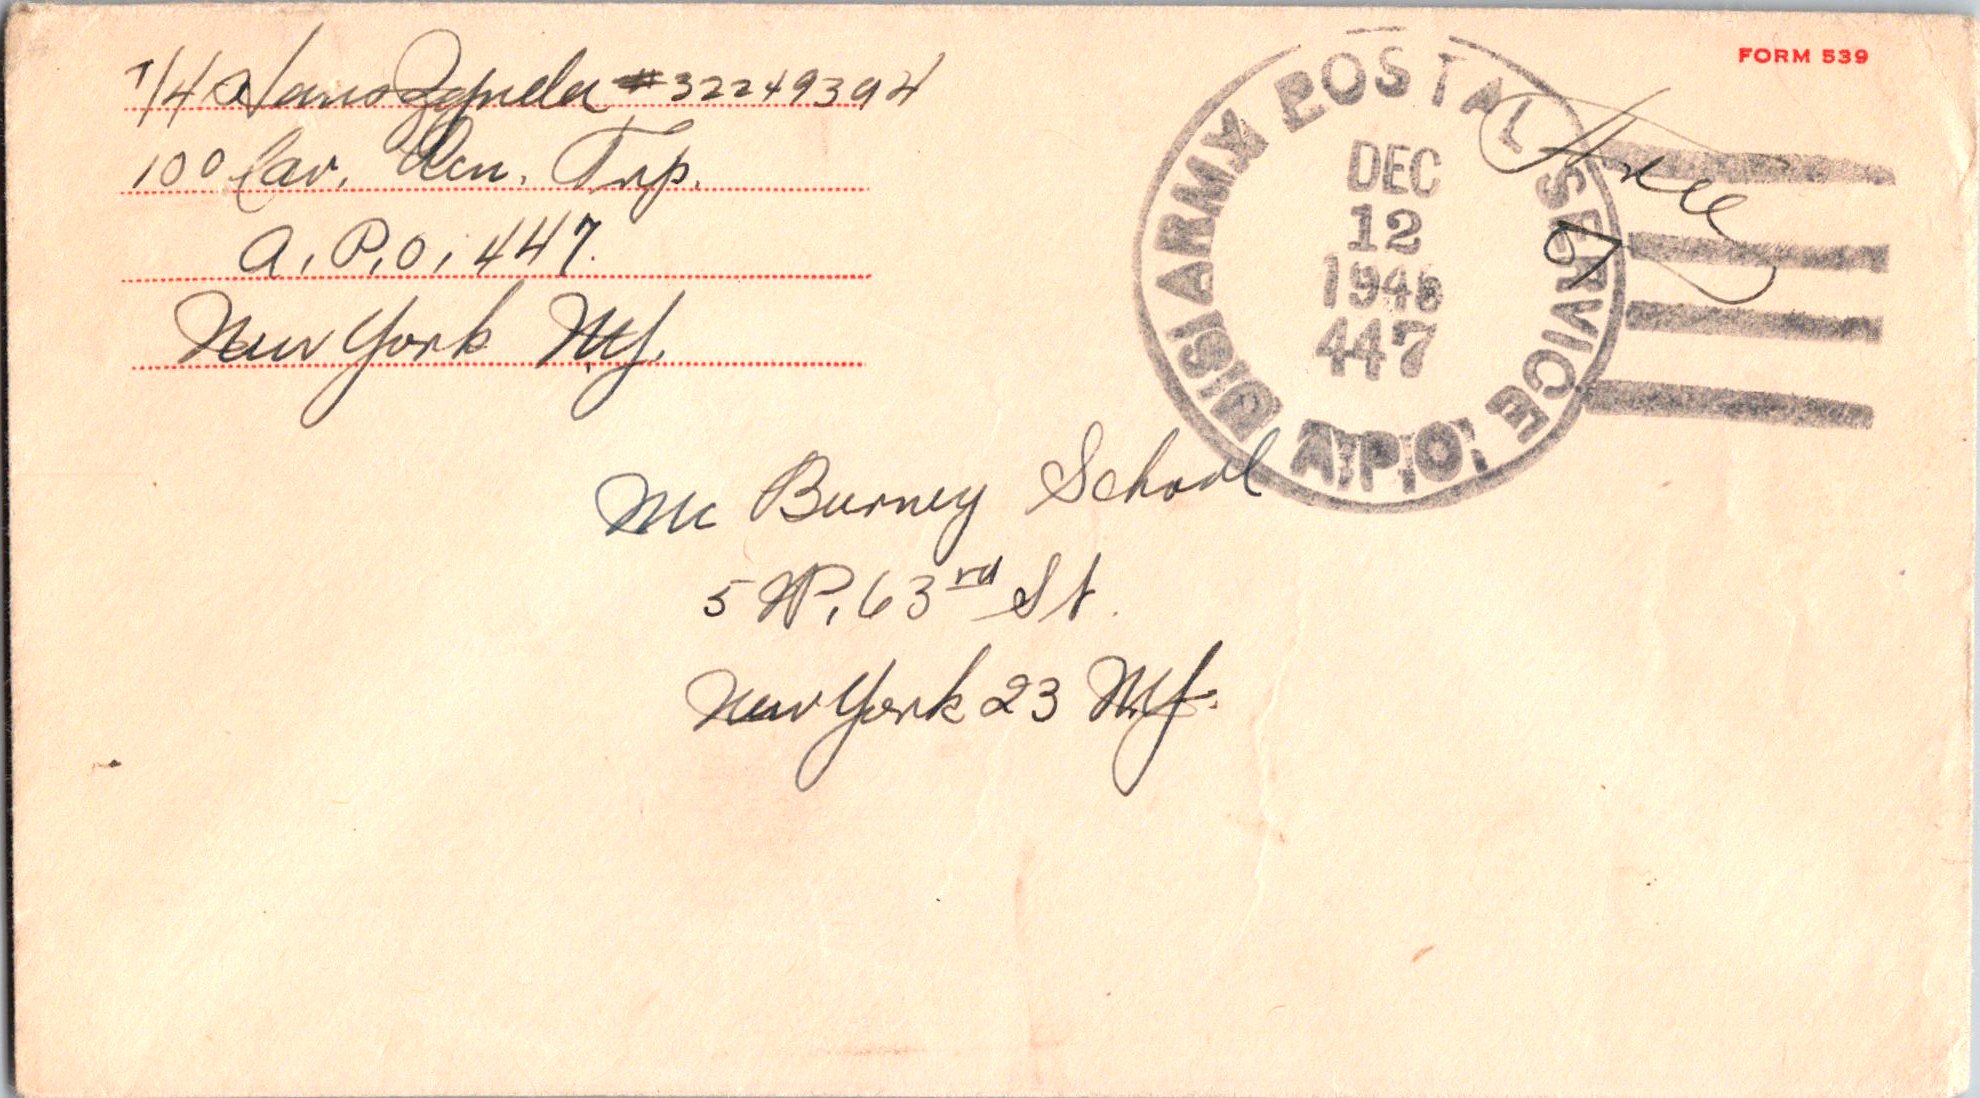 FORM 539
T/4 #32249394
100 Cav. Rcn. Trp.
A.P.O. 447.
New York N.Y.
U.S. ARMY POSTAL SERVICE
A.P.O.
DEC
12
1945
447
Free
Mc Burney School
5 W. 63rd St.
New York 23 N.Y.